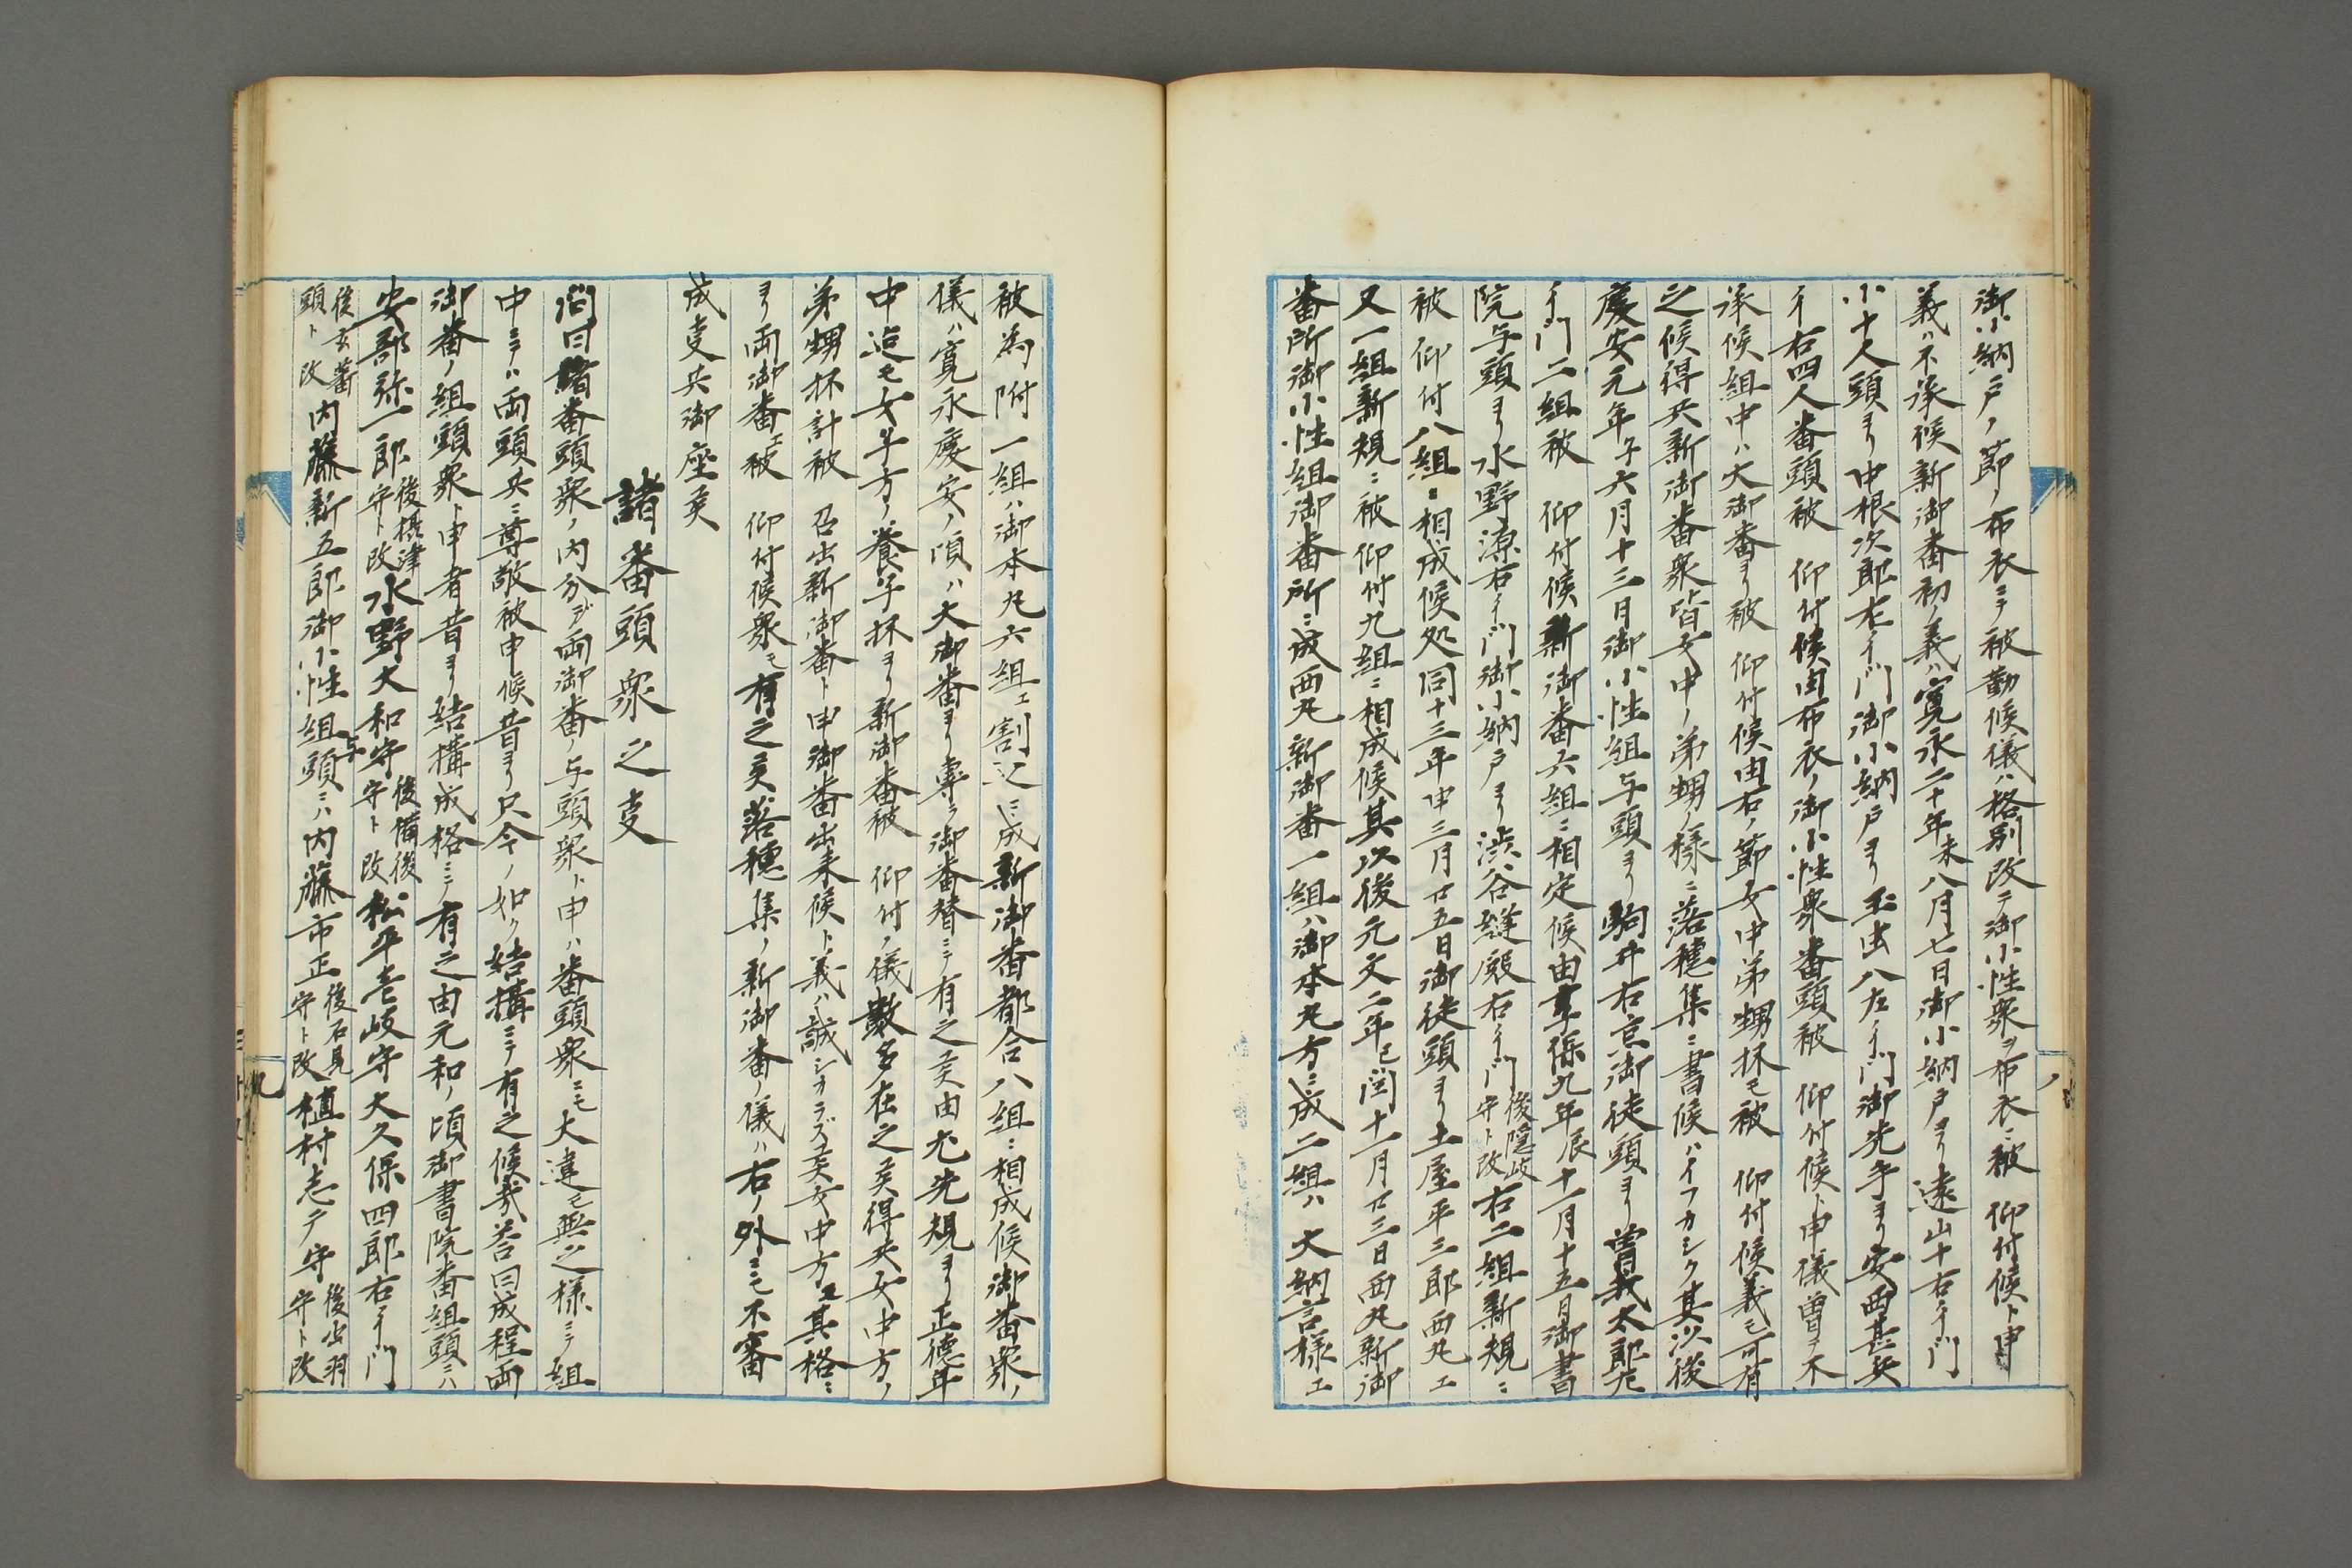 御小納戸ノ節ノ布衣ニテ被勤候儀ハ格別改テ御小性衆ヲ布衣ニ被 仰付候ト申
義ハ不承候新御番初ノ義ハ寛永二十年未八月七日御小納戸ヨリ遠山十右ヱ門
小十人頭ヨリ中根次郎左ヱ門御小納戸ヨリ玉虫八左ヱ門御先手ヨリ安西甚兵
ヱ右四人番頭被 仰付候由布衣ノ御小性衆番頭被 仰付候ト申儀曽テ不
承候組中ハ大御番ヨリ被 仰付候由右ノ節女中弟甥抔モ被 仰付候義モ可有
之候得共新御番衆皆女中ノ弟甥ノ様ニ落穂集ニ書候ハイフカシク其以後
慶安元年子六月十三日御小性組与頭ヨリ駒井右京御徒頭ヨリ曽我太郎左
ヱ門二組被 仰付候新御番六組ニ相定候由享保九年辰十一月十五日御書
院与頭ヨリ水野源右ヱ門御小納戸ヨリ渋谷縫殿右ヱ門後隠岐守ト改右二組新規ニ
被 仰付八組ニ相成候処同十三年申三月廿五日御徒頭ヨリ土屋平三郎西丸エ
又一組新規ニ被 仰付九組ニ相成候其以後元文二年巳閏十一月廿三日西丸新御
番所御小性組御番所ニ成西丸新御番一組ハ御本丸方ニ成二組ハ大納言様エ
被為附一組ハ御本丸六組エ割込ニ成新御番都合八組ニ相成候御番衆ノ
儀ハ寛永慶安ノ頃ハ大御番ヨリ専ラ御番替ニテ有之候由尤先規ヨリ正徳年
中迄モ女中方ノ養子抔ヨリ新御番被 仰付ノ儀数多在之候得共女中方ノ
弟甥抔計被 召出新御番ト申御番出来候ト義ハ誠シカラズ候女中方エ其格ニ
ヨリ両御番エ被 仰付候衆モ有之候落穂集ノ新御番ノ儀ハ右ノ外ニモ不審
成事共御座候
諸番頭衆之事
問曰諸番頭衆ノ内分ヂ両御番ノ与頭衆ト申ハ番頭衆ニモ大違モ無之様ニテ組
中ニテハ両頭共ニ尊敬被申候昔ヨリ只今ノ如ク結構ニテ有之候哉答曰成程両
御番ノ組頭衆ト申者昔ヨリ結構成格ニテ有之由元和ノ頃御書院番組頭ニハ
安部弥一郎後摂津守ト改水野大和守後備後守ト改松平壱岐守大久保四郎右ヱ門
後玄蕃頭ト改内藤新五郎御小性組与頭ニハ内藤市正後石見守ト改植村志テ守後出羽守ト改